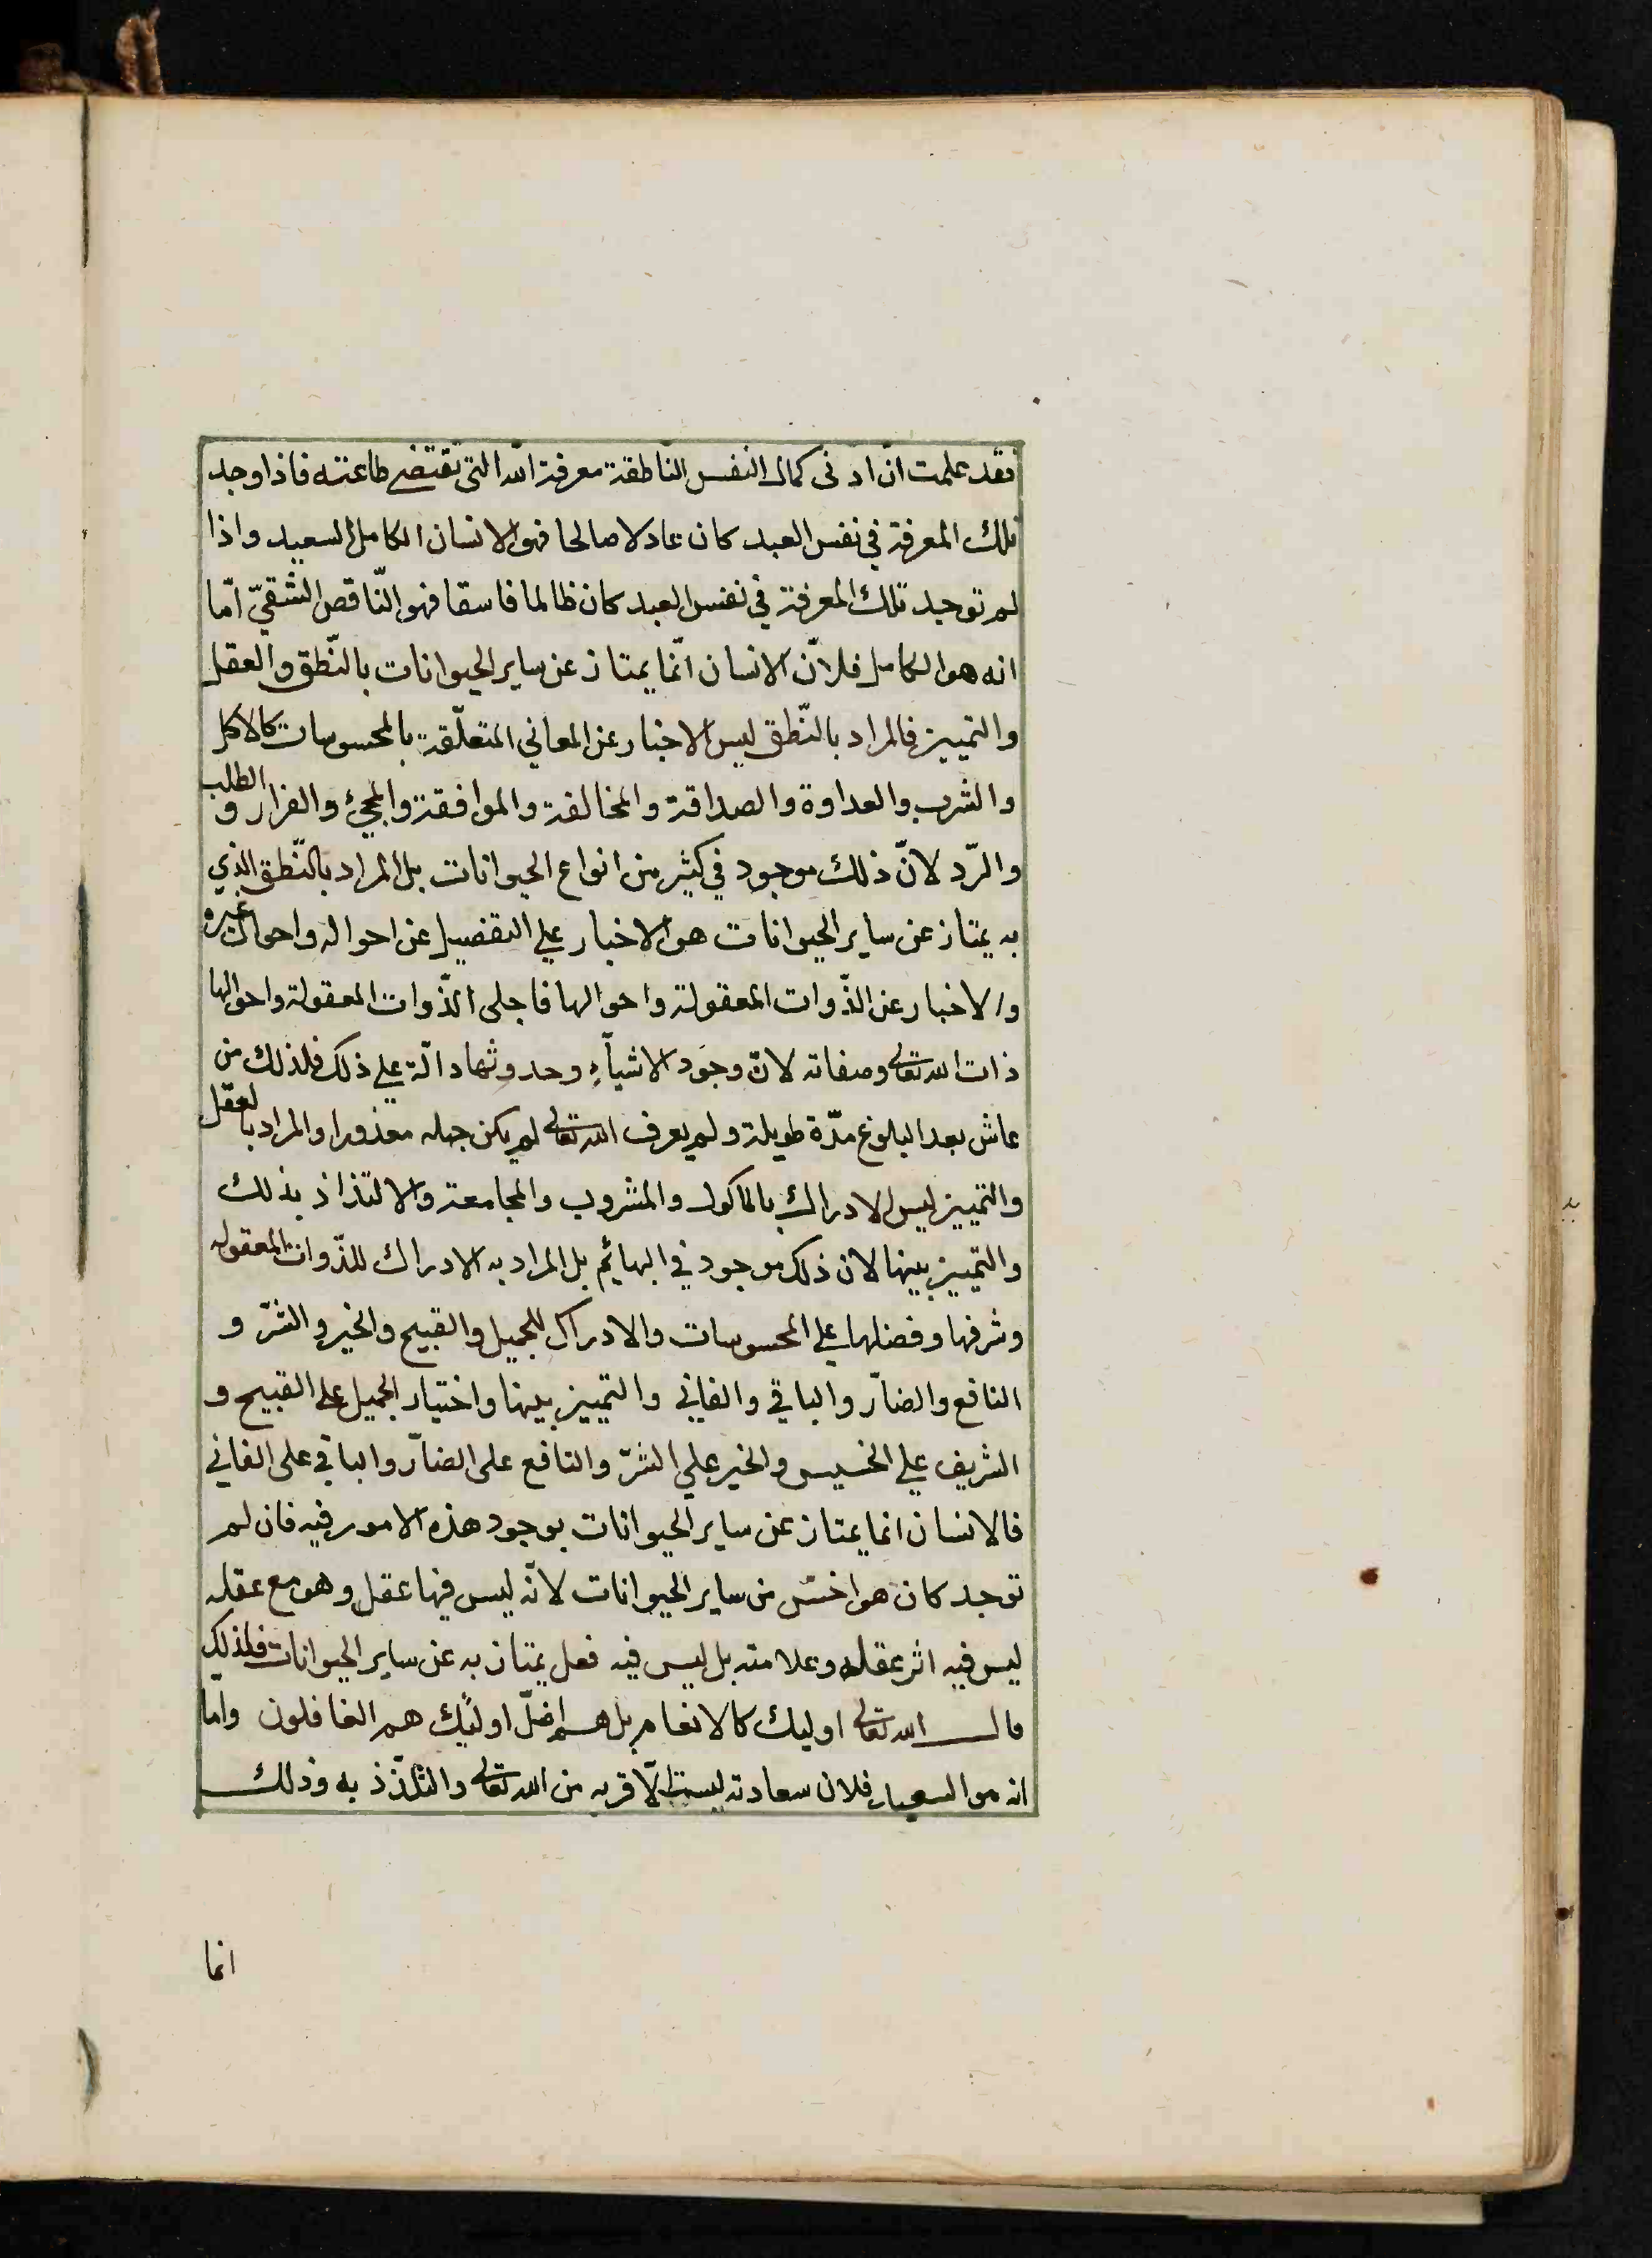 فقد علمت انّ ادنى كمال النفس النّاطقة معرفة الله التى تقتضى طاعته فاذا وجد
تلك المعرفة في نفس العبد كان عادلا صالحا فهو الانسان الكامل السعيد واذا
لم توجد تلك المعرفة في نفس العبد كان ظالما فاسقا فهو النّاقص الشقيّ امّا
انه هو الكامل فلانّ الانسان انّما يمتاز عن ساير الحيوانات بالنّطق والعقل
والتمييز فالمراد بالنّطق ليس الاخبار عن المعاني المتعلّقة بالمحسوسات كالاكل
والشرب والعداوة والصداقة والمخالفة والموافقة والمجئ والفرار و الطلب
والرّد لانّ ذلك موجود في كثير من انواع الحيوانات بل المراد بالنّطق الذي
به يمتاز عن ساير الحيوانات هو الاخبار علي التفضيل عن احواله واحوال غيره
والاخبار عن الذّوات المعقولة واحوالها فاجلى الذّوات المعقولة واحوالها
ذات الله تعالى وصفاته لانّ وجود الاشياءِ وحدوثها دالّة علي ذلك فلذلك من
عاش بعد البلوغ مدّة طويلة ولم يعرف الله تعالى لم يكن جهله معذورا والمراد بالعقل
والتمييز ليس الادراك بالماكول والمشروب والمجامعة والالتذاذ بذلك
والتمييز بينها لان ذلك موجود في البهائم بل المراد به الادراك للذّوات المعقوله
وشرفها وفضلها علي المحسوسات والادراك للجميل والقبيح والخير والشرّ و
النافع والضارّ والباقي والفاني والتمييز بينها واختيار الجميل على القبيح و
الشريف علي الخسيس والخير علي الشرّ والنافع على الضارّ والباقي على الفاني
فالانسان انما يمتاز عن ساير الحيوانات بوجود هذه الامور فيه فان لم
توجد كان هو اخسّ من ساير الحيوانات لانّه ليس فيها عقل وهو مع عقله
ليس فيه اثر عقله وعلامته بل ليس فيه فعل يمتاز به عن ساير الحيوانات فلذلك
قال الله تعالى اوليك كالانعام بل هم اضلّ اولئك هم الغافلون وامّا
انه هو السعيد فلان سعادته ليست الّا قربه من الله تعالى والتلذّذ به وذلك
انما